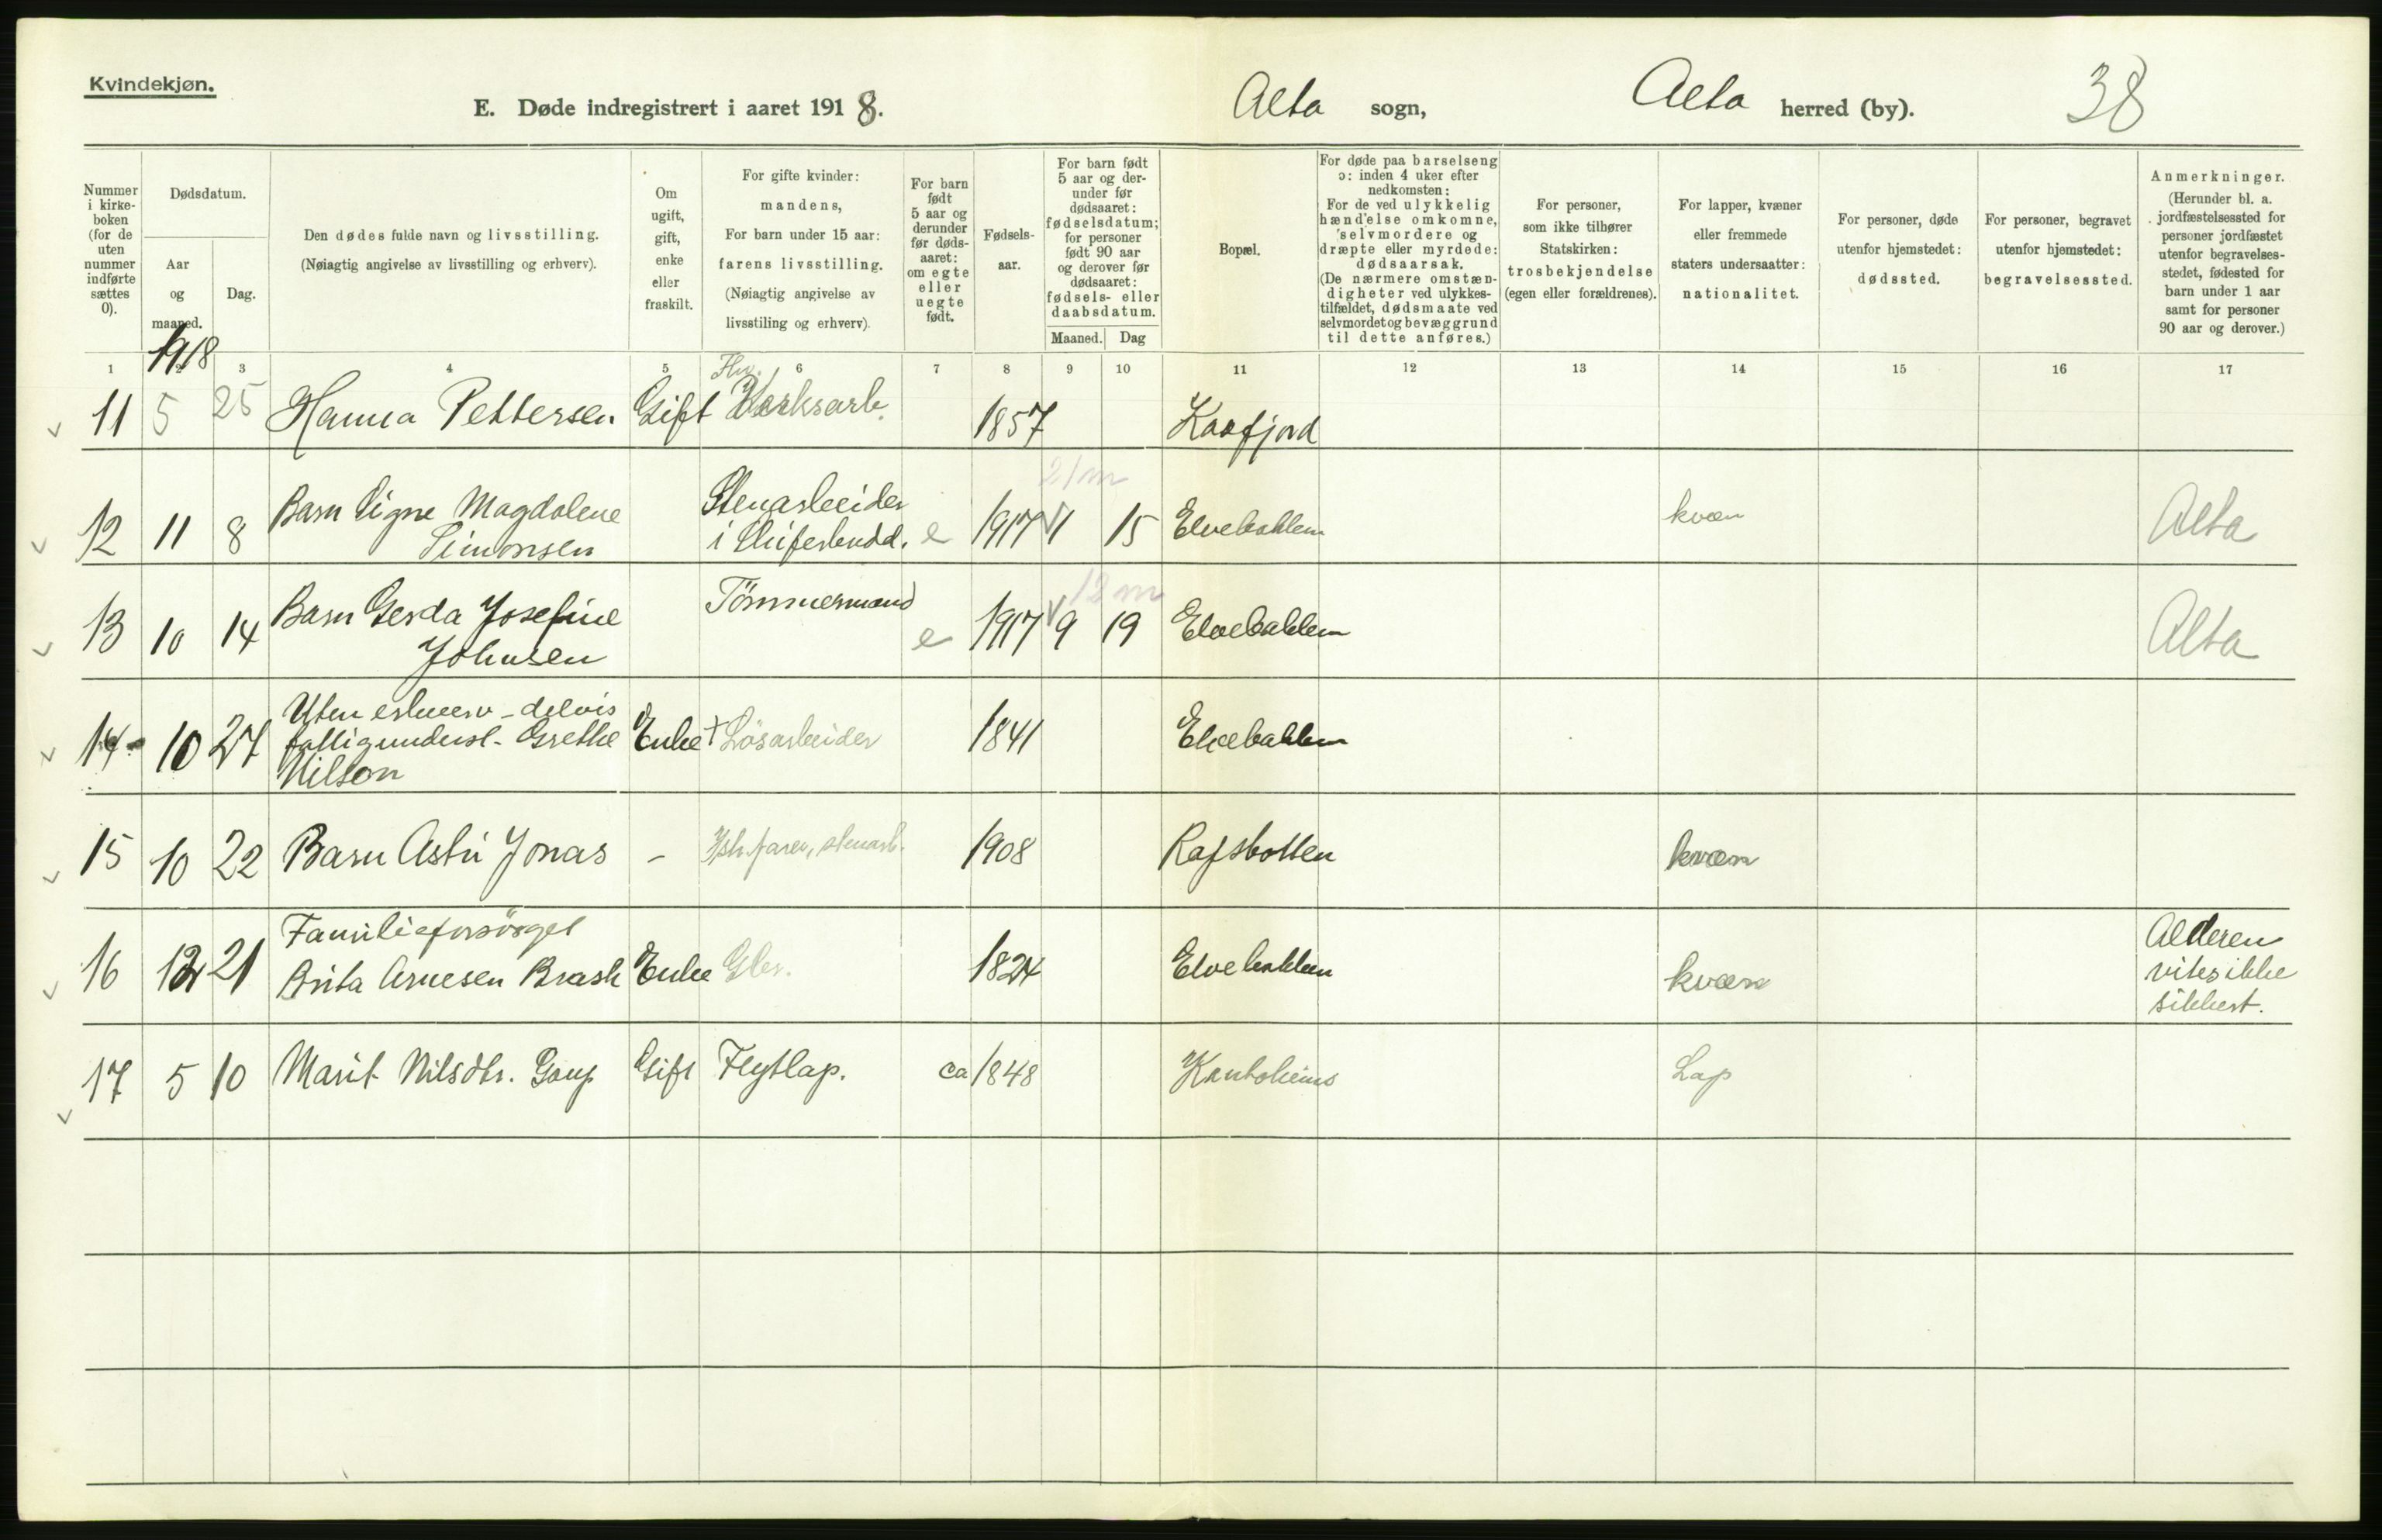 Kvindekjøn.
E. Døde indregistrert i aaret 1918.
Alta sogn,
Alta herred (by).
38
Nummer i kirkeboken (for de uten nummer indførte sættes 0).
Dødsdatum.
Aar og maaned.
Dag.
Den dødes fulde navn og livsstilling.
(Nøiagtig angivelse av livsstilling og erhverv).
Om ugift, gift, enke eller fraskilt.
For gifte kvinder:
mandens,
For barn under 15 aar:
farens livsstilling.
(Nøiagtig angivelse av
livsstiling og erhverv).
For barn født 5 aar og derunder før dødsaaret: om egte eller uegte født.
Fødselsaar.
For barn født
5 aar og derunder før
dødsaaret:
fødselsdatum;
for personer
født 90 aar
og derover før
dødsaaret:
fødsels- eller
daabsdatum.
Maaned. Dag
Bopæl.
For døde paa barselseng
ɔ: inden 4 uker efter
nedkomsten:
For de ved ulykkelig
hændelse omkomne,
selvmordere og
dræpte eller myrdede:
dødsaarsak.
(De nærmere omstæn-
digheter ved ulykkes-
tilfældet, dødsmaate ved
selvmordet og bevæggrund
til dette anføres.)
For personer,
som ikke tilhører
Statskirken:
trosbekjendelse
(egen eller forældrenes).
For lapper, kvæner
eller fremmede
staters undersaatter:
nationalitet.
For personer, døde
utenfor hjemstedet:
dødssted.
For personer, begravet
utenfor hjemstedet:
begravelsessted.
Anmerkninger.
(Herunder bl. a.
jordfæstelsessted for
personer jordfæstet
utenfor begravelses-
stedet, fødested for
barn under 1 aar
samt for personer
90 aar og derover.)
1 2 3 4 5 6 7 8 9 10 11 12 13 14 15 16 17
1918
11 5 25 Hanna Pettersen Gift Verksarb. 1857 Kaafjord
21 m
12 11 8 Barn Signe Magdalene Simonsen Stenarbeider i Skiferbrudd. e 1917 1 15 Elvebakken kvæn Alta
12 m
13 10 14 Barn Gerda Josefine Johnsen Tömmermand e 1917 9 19 Elvebakken Alta
14 10 27 Uten erhverv - delvis fattigunderst. Grethe Nilson Enke + Lösarbeider 1841 Elvebakken
15 10 22 Barn Astri Jonas - stenarb. 1908 Rafsbotten kvæn
16 12 21 Familieforsörget Brita Arnesen Brask Enke Gbr. 1824 Elvebakken kvæn Alderen vites ikke sikkert.
17 5 10 Marit Nilsdtr. Gaup Gift Flytlap. ca 1848 Kautokeino Lap